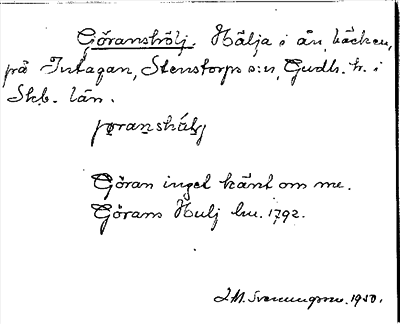 Göranshölj. Hölja i ån, bäcken,
på Intagan, Stenstorps s:n, Gudh. h. i
Skb. län.
jøranshølj
Göran inget känt om me.
Görans Hulj hu. 1792.
J.M. 1950.